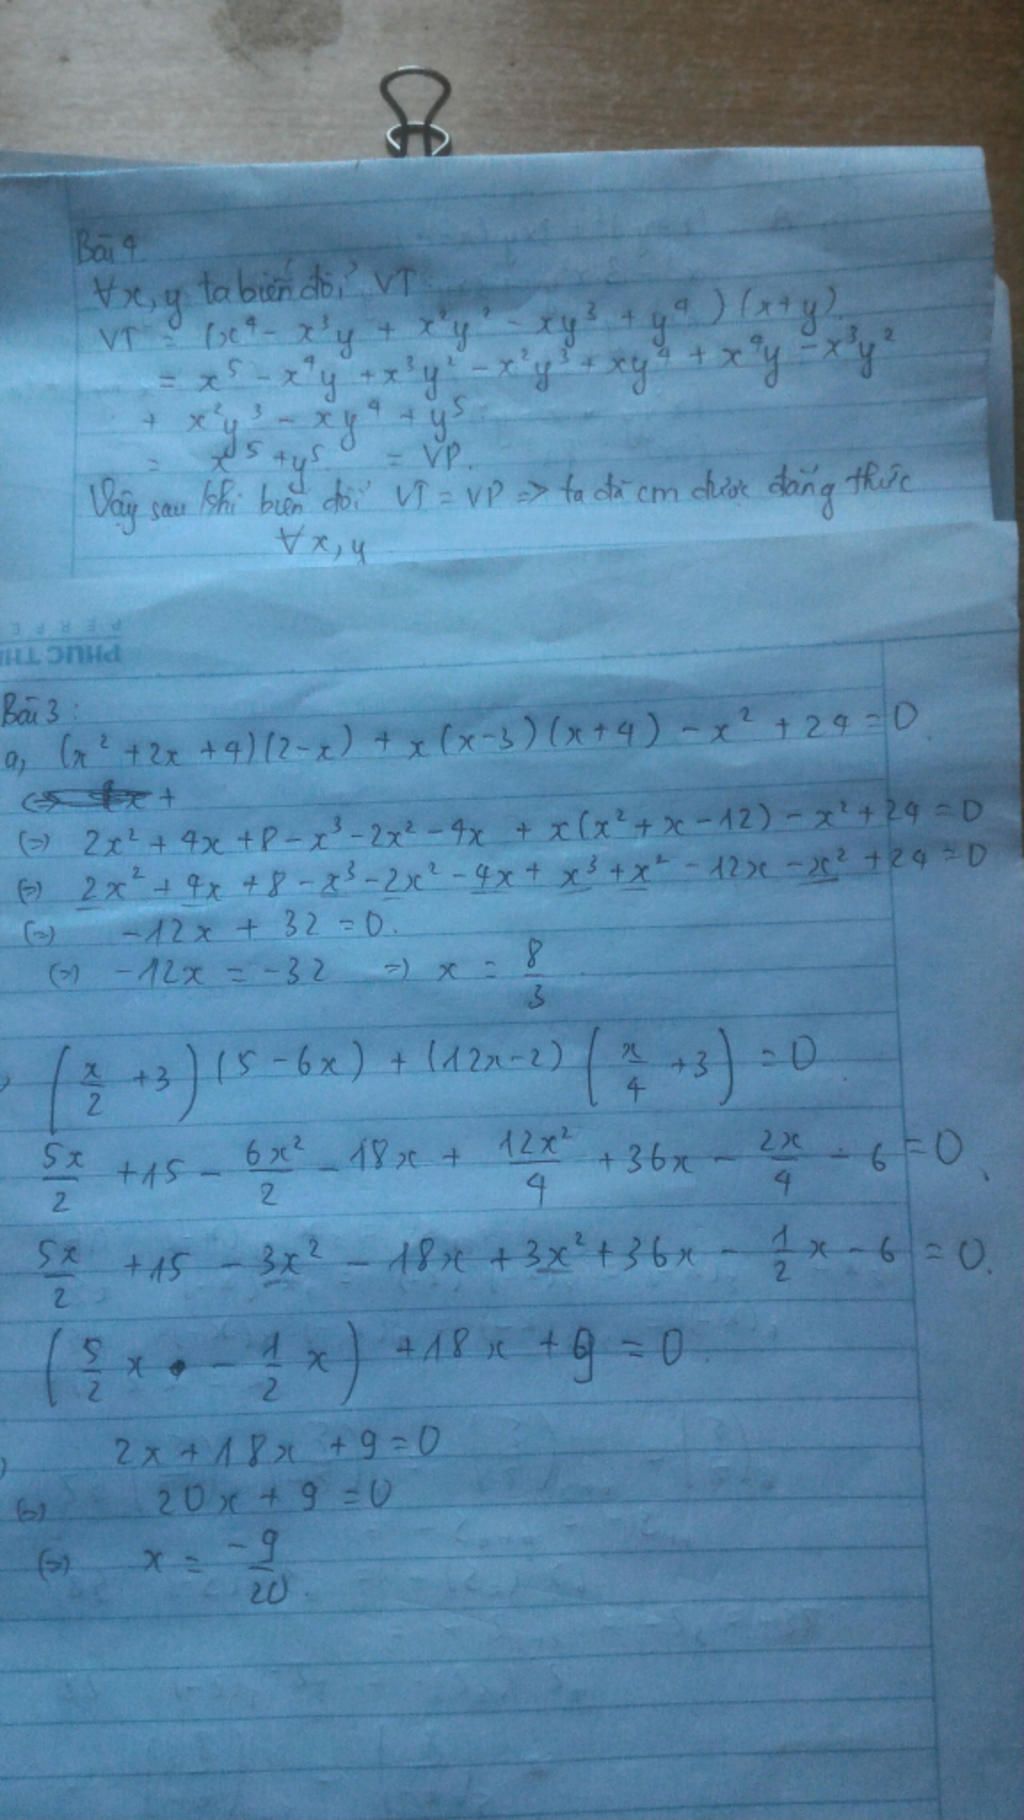 Bài 4
∀x, y ta biến đổi VT
VT = (x⁴ - x³y + x²y² - xy³ + y⁴)(x+y)
= x⁵ - x⁴y + x³y² - x²y³ + xy⁴ + x⁴y - x³y²
+ x²y³ - xy⁴ + y⁵
= x⁵ + y⁵ = VP.
Vậy sau khi biến đổi VT = VP => ta đã cm được đẳng thức
∀x, y
PHUC TH
Bài 3:
a, (x² + 2x + 4)(2-x) + x(x-3)(x+4) - x² + 24 = 0
(=) 2x² + 4x + 8 - x³ - 2x² - 4x + x(x² + x - 12) - x² + 24 = 0
(=) 2x² + 4x + 8 - x³ - 2x² - 4x + x³ + x² - 12x - x² + 24 = 0
(=) -12x + 32 = 0.
(=) -12x = -32 => x = 8/3
(x/2 + 3)(5 - 6x) + (12x - 2)(x/4 + 3) = 0.
5x/2 + 15 - 6x²/2 - 18x + 12x²/4 + 36x - 2x/4 - 6 = 0
5x/2 + 15 - 3x² - 18x + 3x² + 36x - 1/2x - 6 = 0.
(5/2x - 1/2x) + 18x + 9 = 0.
2x + 18x + 9 = 0
(=) 20x + 9 = 0
(=) x = -9/20.